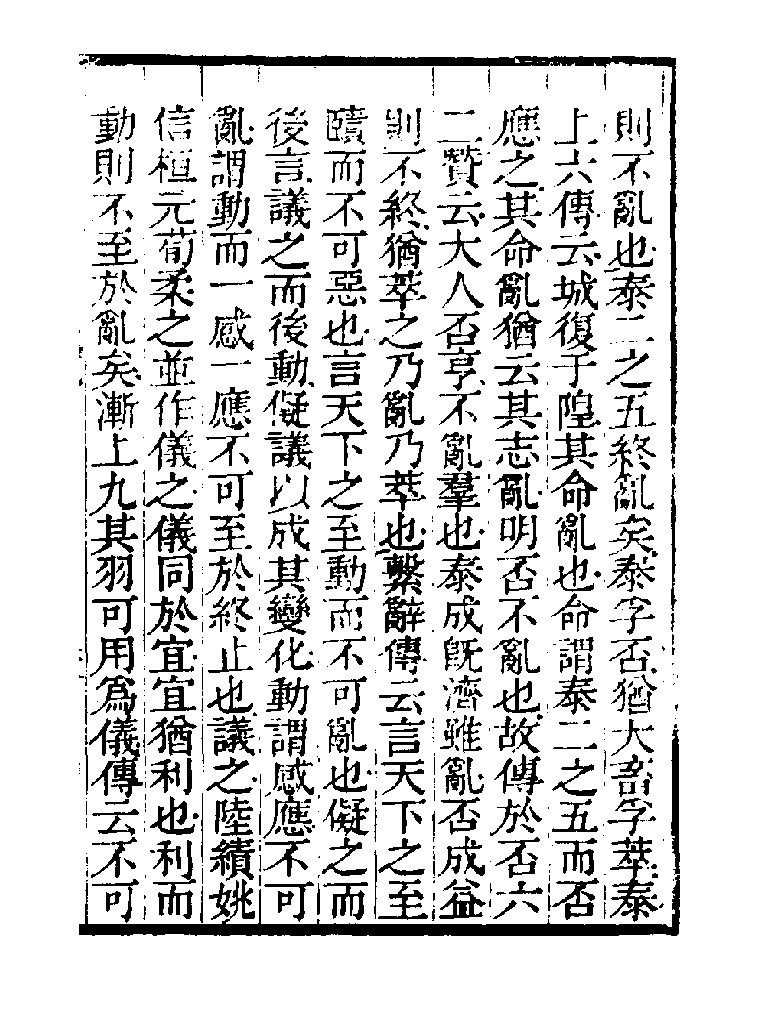 則不亂也泰二之五終亂矣泰孚否猶大畜孚萃泰
上六傳云城復于隍其命亂也命謂泰二之五而否
應之其命亂猶云其志亂明否不亂也故傳於否六
二贊云大人否亨不亂羣也泰成旣濟雖亂否成益
則不終猶萃之乃亂乃萃也繫辭傳云言天下之至
賾而不可惡也言天下之至動而不可亂也儗之而
後言議之而後動儗議以成其變化動謂感應不可
亂謂動而一感一應不可至於終止也議之陸績姚
信桓元荀柔之並作儀之儀同於宜宜猶利也利而
動則不至於亂矣漸上九其羽可用爲儀傳云不可